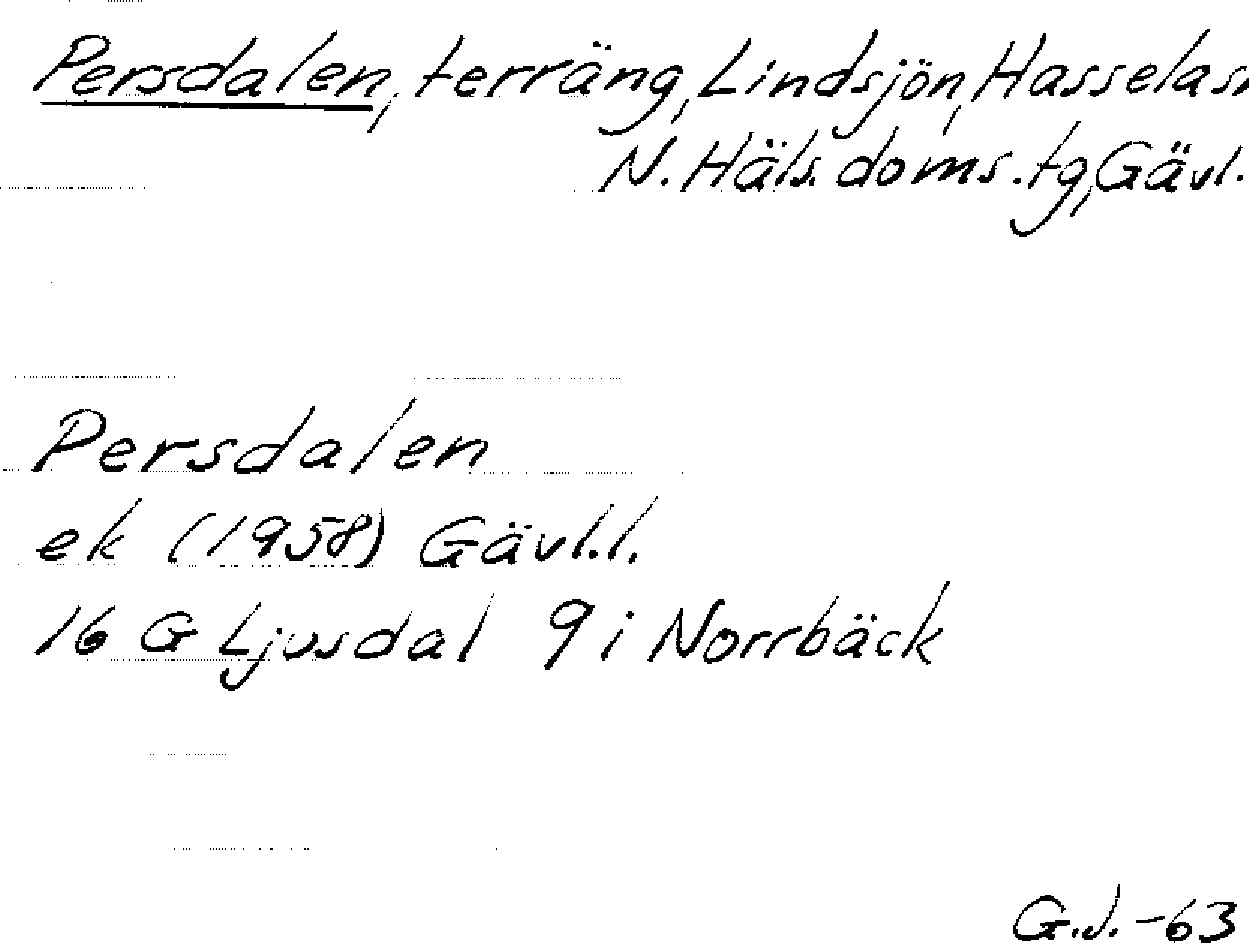 Persdalen, terräng, Lindsjön, Hasselasn
N. Häls. doms. tg, Gävl.
Persdalen
ek (1958) Gävl.l.
16 G Ljusdal 9 i Norrbäck
G.J. -63